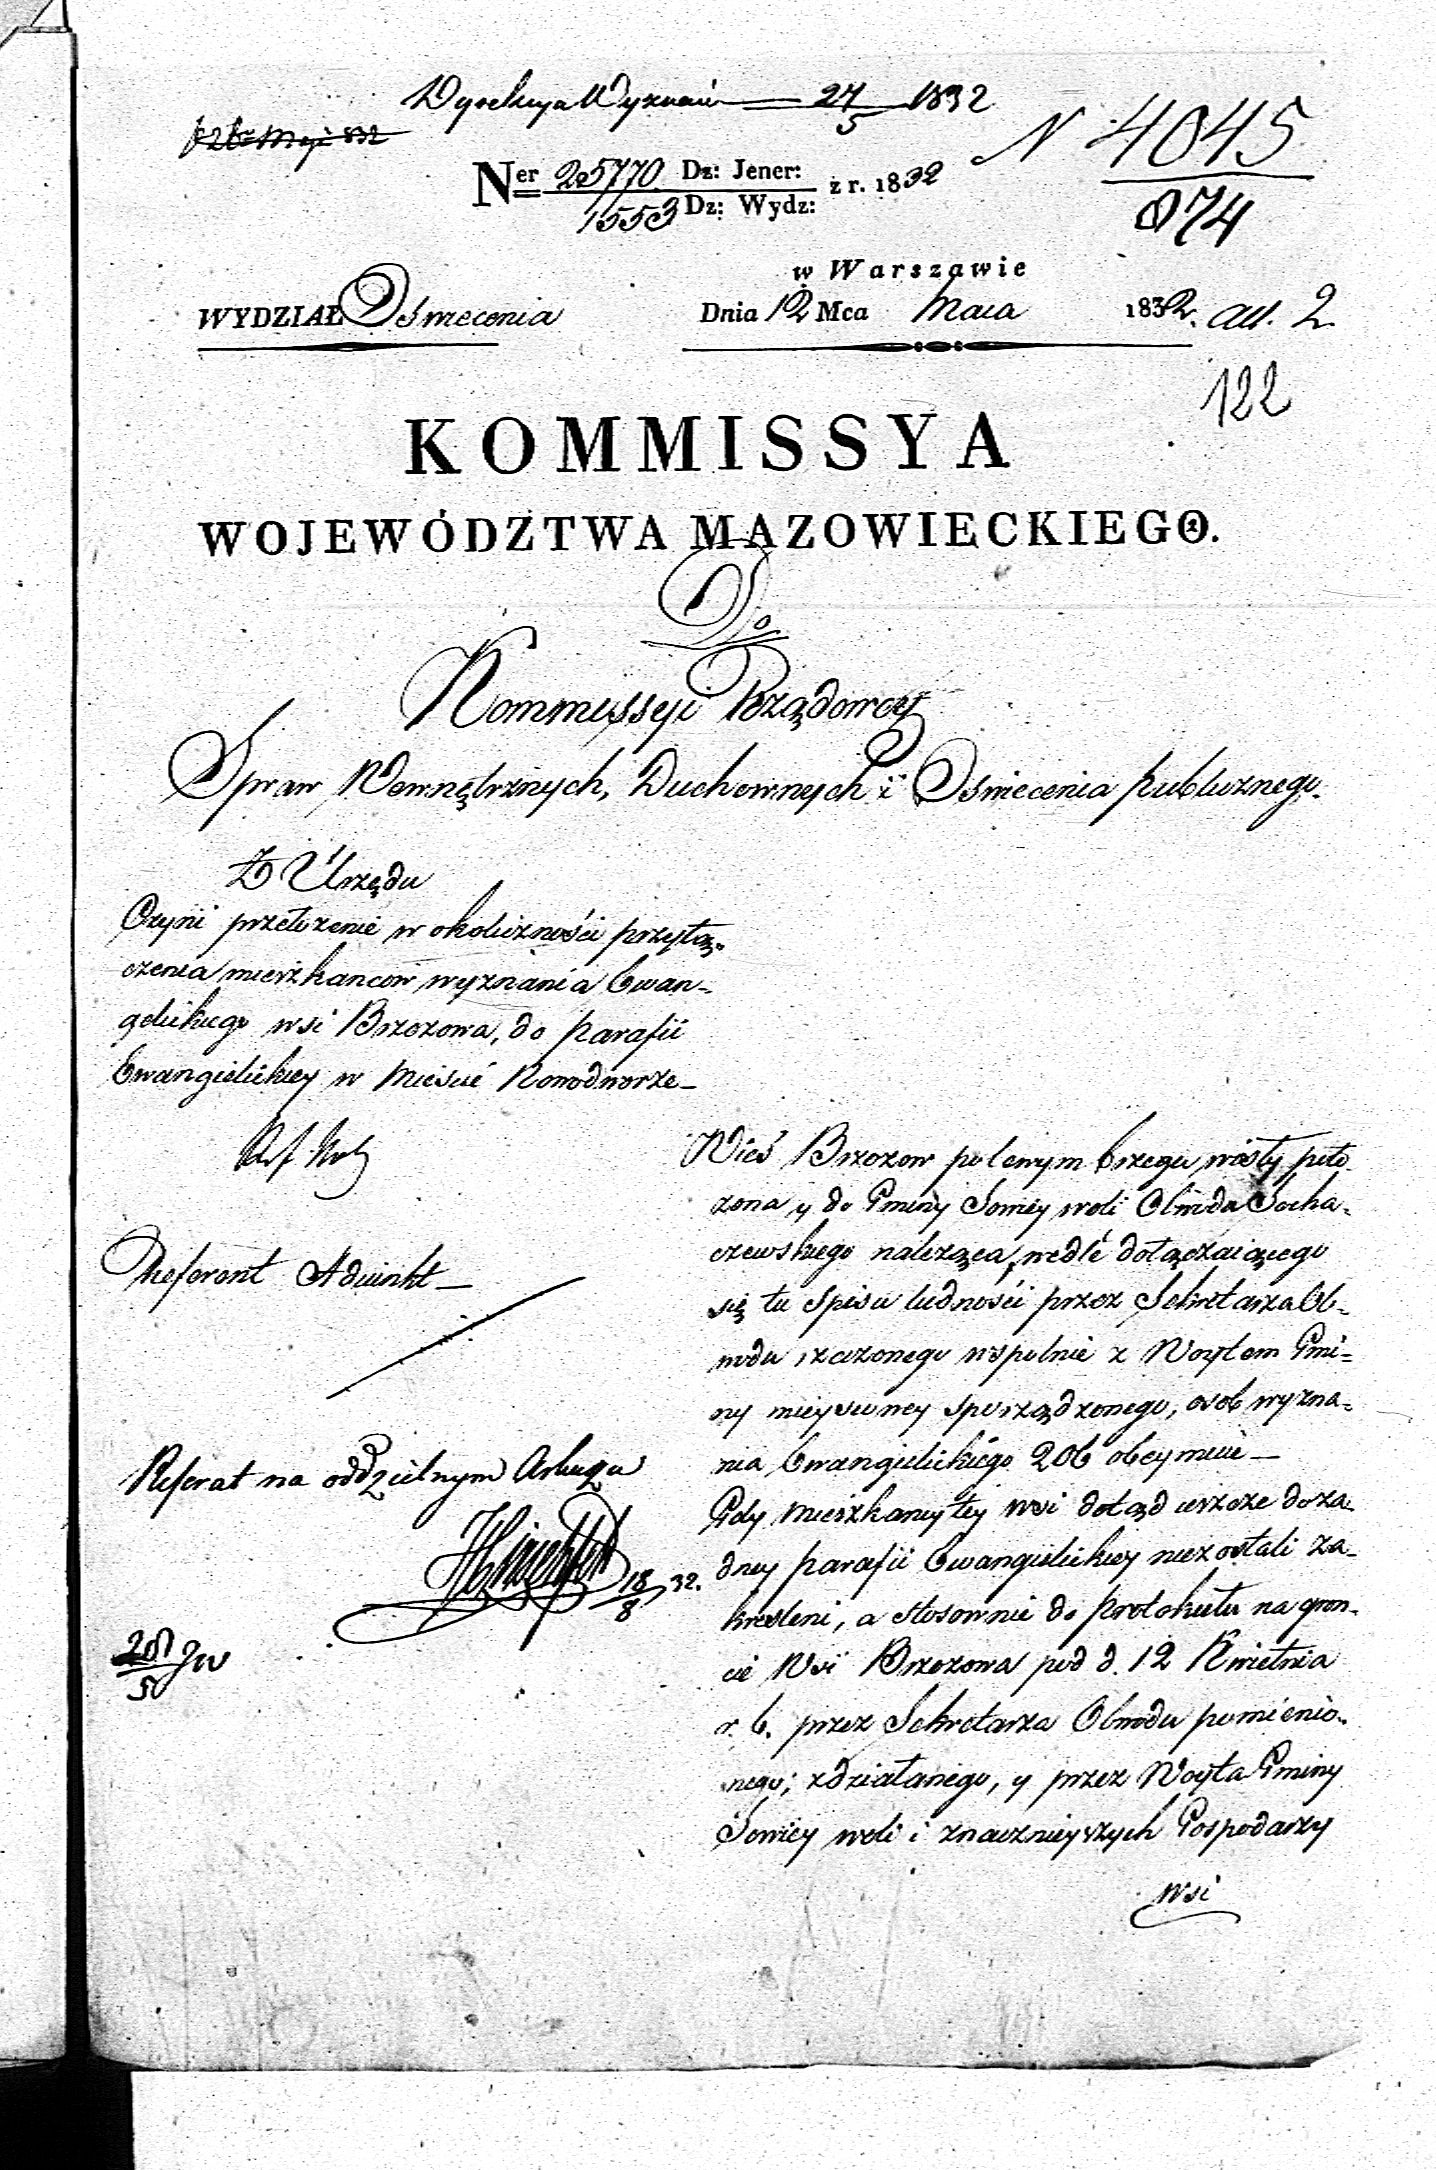 Dyrekcya Wyznań 24/5 1832
26 Maja 832
N 4045
874
Ner 25770 Dz: Jener: z r. 1832
1553 Dz: Wydz:
w Warszawie
WYDZIAŁ Oświecenia Dnia 12 Mca Maia 1832. ad. 2
122
KOMMISSYA
WOJEWÓDZTWA MAZOWIECKIEGO.
Do
Kommissyi Rządowey
Spraw Wewnętrznych, Duchownych i Oświecenia publicznego.
Z Urzędu
Czyni przełożenie w okoliczności przyłą-
czenia mieszkancow wyznania Ewan-
gelickiego wsi Brzozowa, do parafii
Ewangielickiey w Mieście Nowodworze
Referent Adiunkt
Referat na oddzielnym Arkuszu
18/8 32.
28/5
Wieś Brzozow po lewym brzegu wisły poło-
zona y do Gminy Sowiey woli Obwodu Socha-
czewskiego należąca, wedle dołączaiącego
się tu Spisu ludności przez Sekretarza Ob-
wodu rzeczonego wspolnie z Woytem Gmi-
ny mieyscowey sporządzonego, osob wyzna-
nia Ewangielickiego 206 obeymuie
Gdy mieszkancy tey wsi dotąd ieszcze do ża-
dney parafii Ewangielickiey niezostali za-
kresleni, a stosownie do protokułu na grun-
cie Wsi Brzozowa pod d. 12 Kwietnia
r. b. przez Sekretarza Obwodu pomienio-
nego; zdziałanego, y przez Woyta Gminy
Sowiey woli i znacznieyszych Gospodarzy
wsi